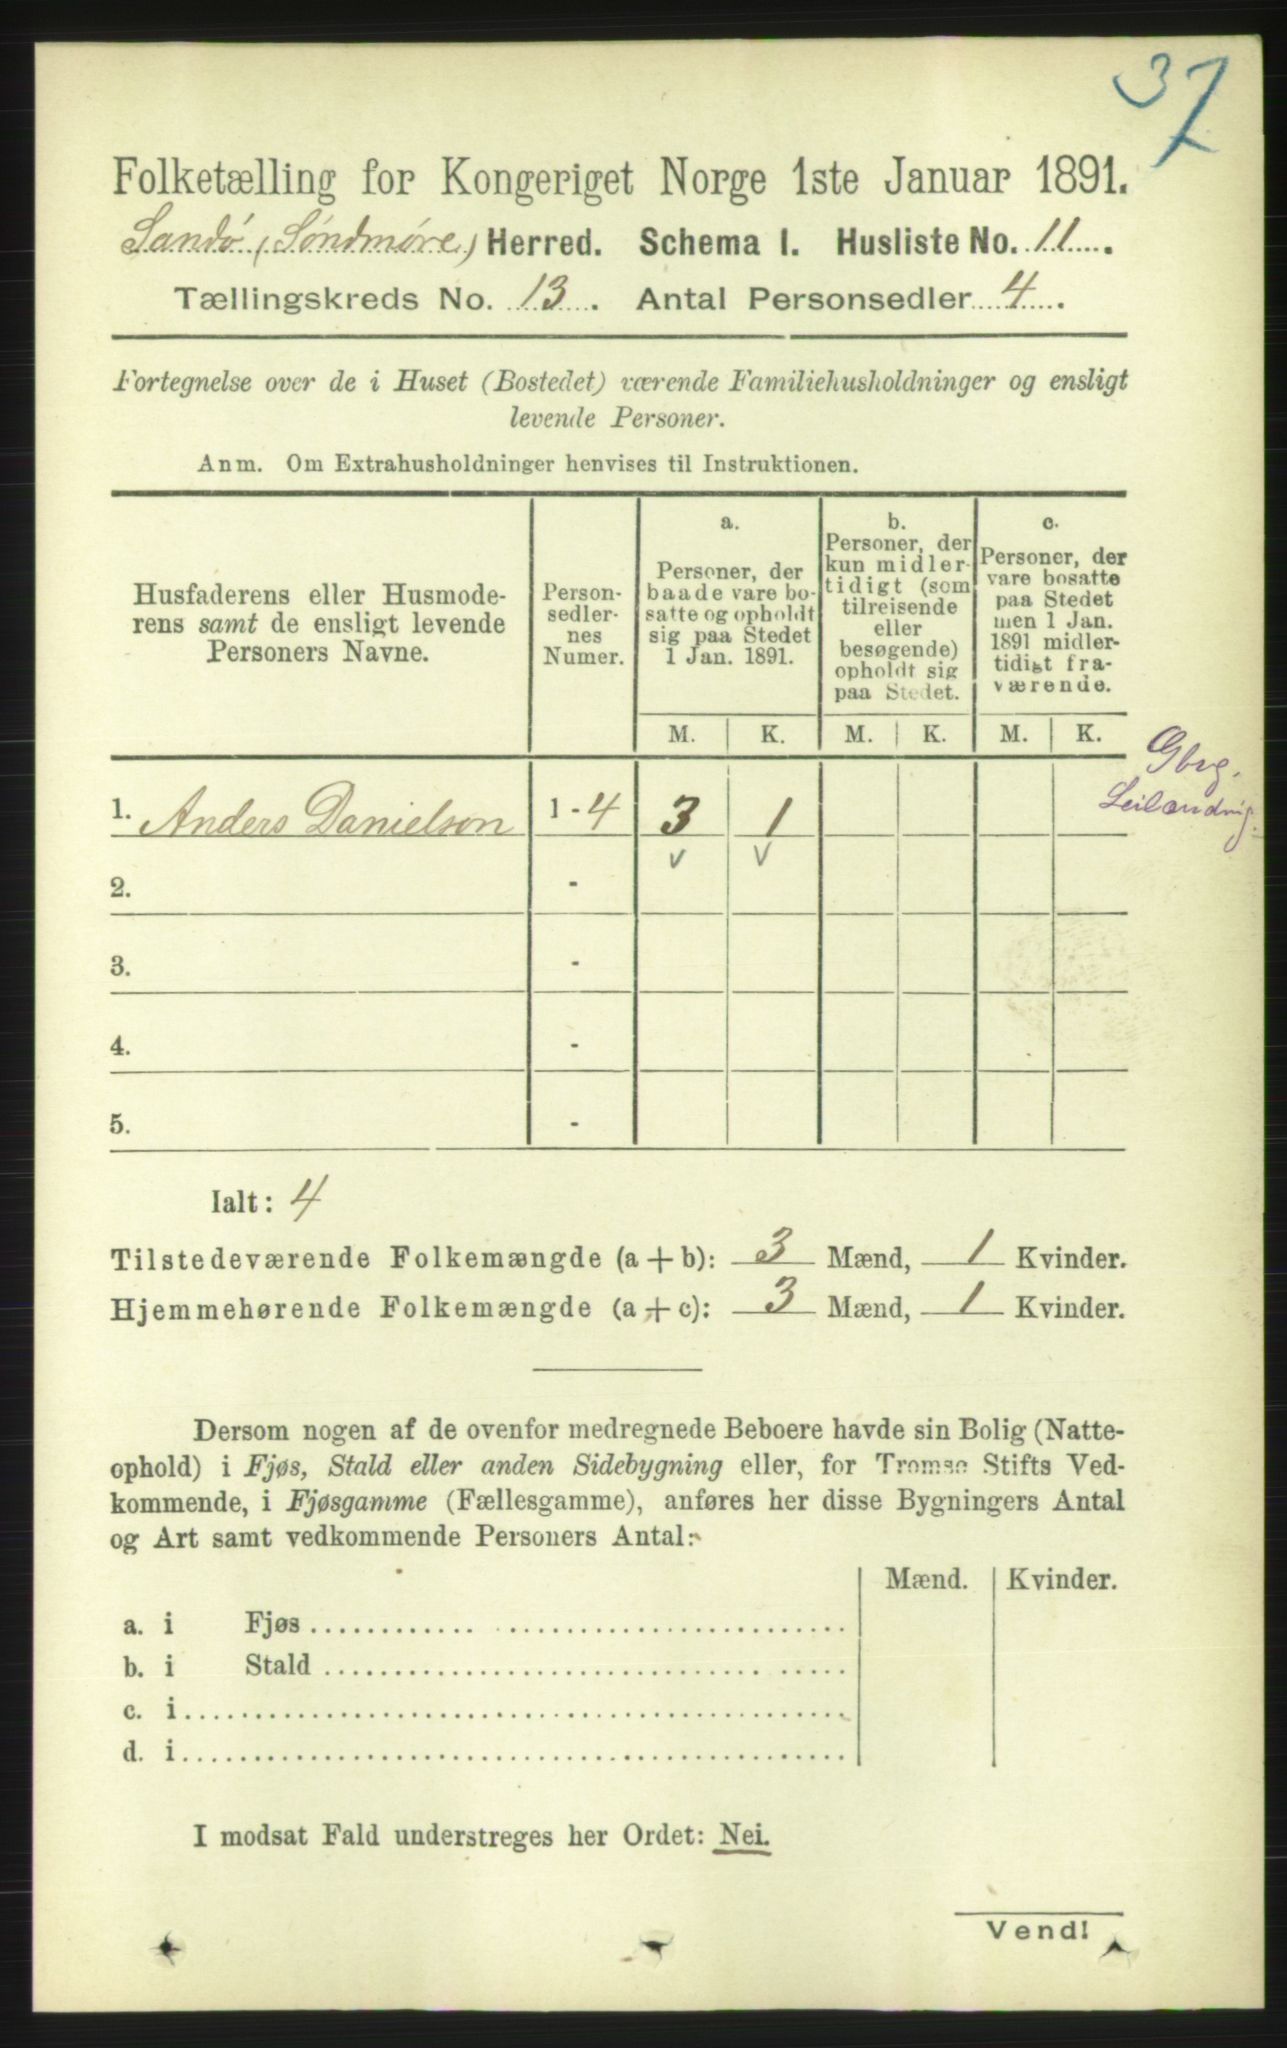 37
Folketælling for Kongeriget Norge 1ste Januar 1891.
Sandø (Søndmøre) Herred. Schema I. Husliste No. 11.
Tællingskreds No. 13. Antal Personsedler 4.
Fortegnelse over de i Huset (Bostedet) værende Familiehusholdninger og ensligt
levende Personer.
Anm. Om Extrahusholdninger henvises til Instruktionen.
Husfaderens eller Husmode-
rens samt de ensligt levende
Personers Navne.
Person-
sedler-
nes
Numer.
a.
Personer, der
baade vare bo-
satte og opholdt
sig paa Stedet
1 Jan. 1891.
b.
Personer, der
kun midler-
tidigt (som
tilreisende
eller
besøgende)
opholdt sig
paa Stedet.
c.
Personer, der
vare bosatte
paa Stedet
men 1 Jan.
1891 midler-
tidigt fra-
værende.
M. K. M. K. M. K.
1. Anders Danielson 1 - 4 3 1
Gbrg.
Leilændnig.
v v
2. -
3. -
4. -
5. -
Ialt: 4
Tilstedeværende Folkemængde (a + b): 3 Mænd, 1 Kvinder.
Hjemmehørende Folkemængde (a + c): 3 Mænd, 1 Kvinder.
Dersom nogen af de ovenfor medregnede Beboere havde sin Bolig (Natte-
ophold) i Fjøs, Stald eller anden Sidebygning eller, for Tromsø Stifts Ved-
kommende, i Fjøsgamme (Fællesgamme), anføres her disse Bygningers Antal
og Art samt vedkommende Personers Antal:
Mænd. Kvinder.
a. i Fjøs
b. i Stald
c. i
d. i
I modsat Fald understreges her Ordet: Nei.
Vend!